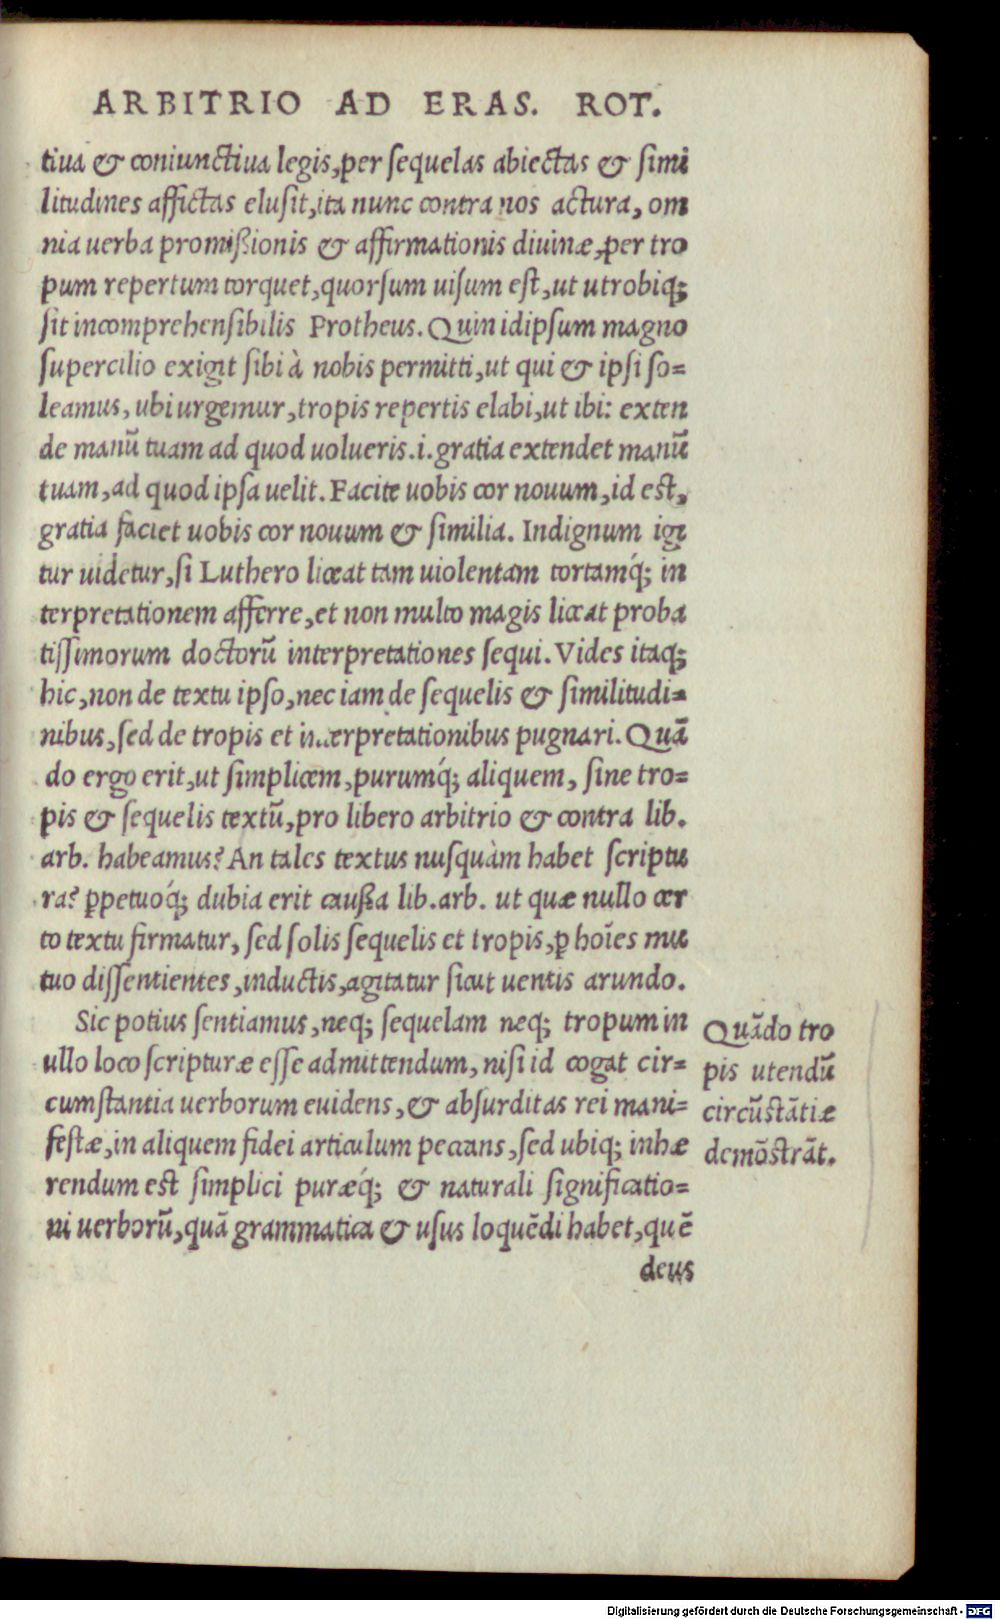 ARBITRIO AD ERAS. ROT.
tiua & coniunctiua legis, per sequelas abiectas & simi
litudines affictas elusit, ita nunc contra nos actura, om
nia uerba promißionis & affirmationis diuinæ, per tro
pum repertum torquet, quorsum uisum est, ut utrobiq;
sit incomprehensibilis Protheus. Quin idipsum magno
supercilio exigit sibi à nobis permitti, ut qui & ipsi so=
leamus, ubi urgemur, tropis repertis elabi, ut ibi: exten
de manū tuam ad quod uolueris .i. gratia extendet manū
tuam, ad quod ipsa uelit. Facite uobis cor nouum, id est,
gratia faciet uobis cor nouum & similia. Indignum igi
tur uidetur, si Luthero liceat tam uiolentam tortamq́; in
terpretationem afferre, et non multo magis liceat proba
tissimorum doctorū interpretationes sequi. Vides itaq;
hic, non de textu ipso, nec iam de sequelis & similitudi=
nibus, sed de tropis et interpretationibus pugnari. Quā
do ergo erit, ut simplicem, purumq́; aliquem, sine tro=
pis & sequelis textū, pro libero arbitrio & contra lib.
arb. habeamus? An tales textus nusquàm habet scriptu
ra? ꝑpetuoq́; dubia erit caußa lib. arb. ut quæ nullo cer
to textu firmatur, sed solis sequelis et tropis, ꝑ hoīes mu
tuo dissentientes, inductis, agitatur sicut uentis arundo.
Sic potius sentiamus, neq; sequelam neq; tropum in
ullo loco scripturæ esse admittendum, nisi id cogat cir=
cumstantia uerborum euidens, & absurditas rei mani=
festæ, in aliquem fidei articulum peccans, sed ubiq; inhæ
rendum est simplici puræq́; & naturali significatio=
ni uerborū, quā grammatica & usus loquēdi habet, quē
deus
Quādo tro
pis utendū
circūstātiæ
demōstrāt.
Digitalisierung gefördert durch die Deutsche Forschungsgemeinschaft - DFG